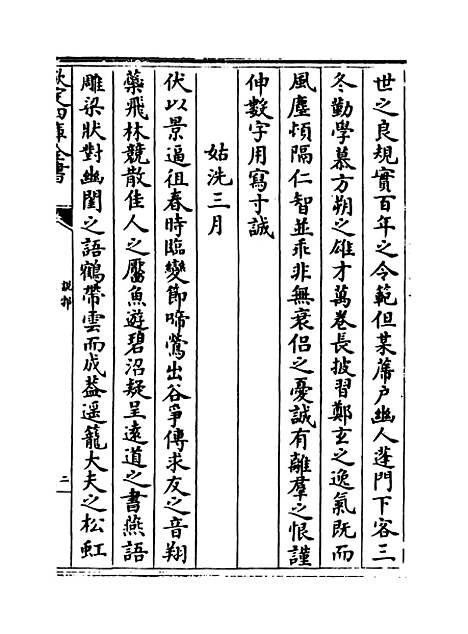 世之良規實百年之令範但某蓆戶幽人蓬門下客三
冬勤學慕方朔之雄才萬卷長披習鄭玄之逸氣既而
風塵頓隔仁智並乖非無衰侶之憂誠有離羣之恨謹
伸數字用寫寸誠
姑洗三月
伏以景逼徂春時臨變節啼鶯出谷爭傳求友之音翔
蘂飛林競散佳人之靨魚遊碧沼疑呈遠道之書燕語
雕梁狀對幽閨之語鶴帶雲而成葢遥籠大夫之松虹
欽定四庫全書
說郛
二